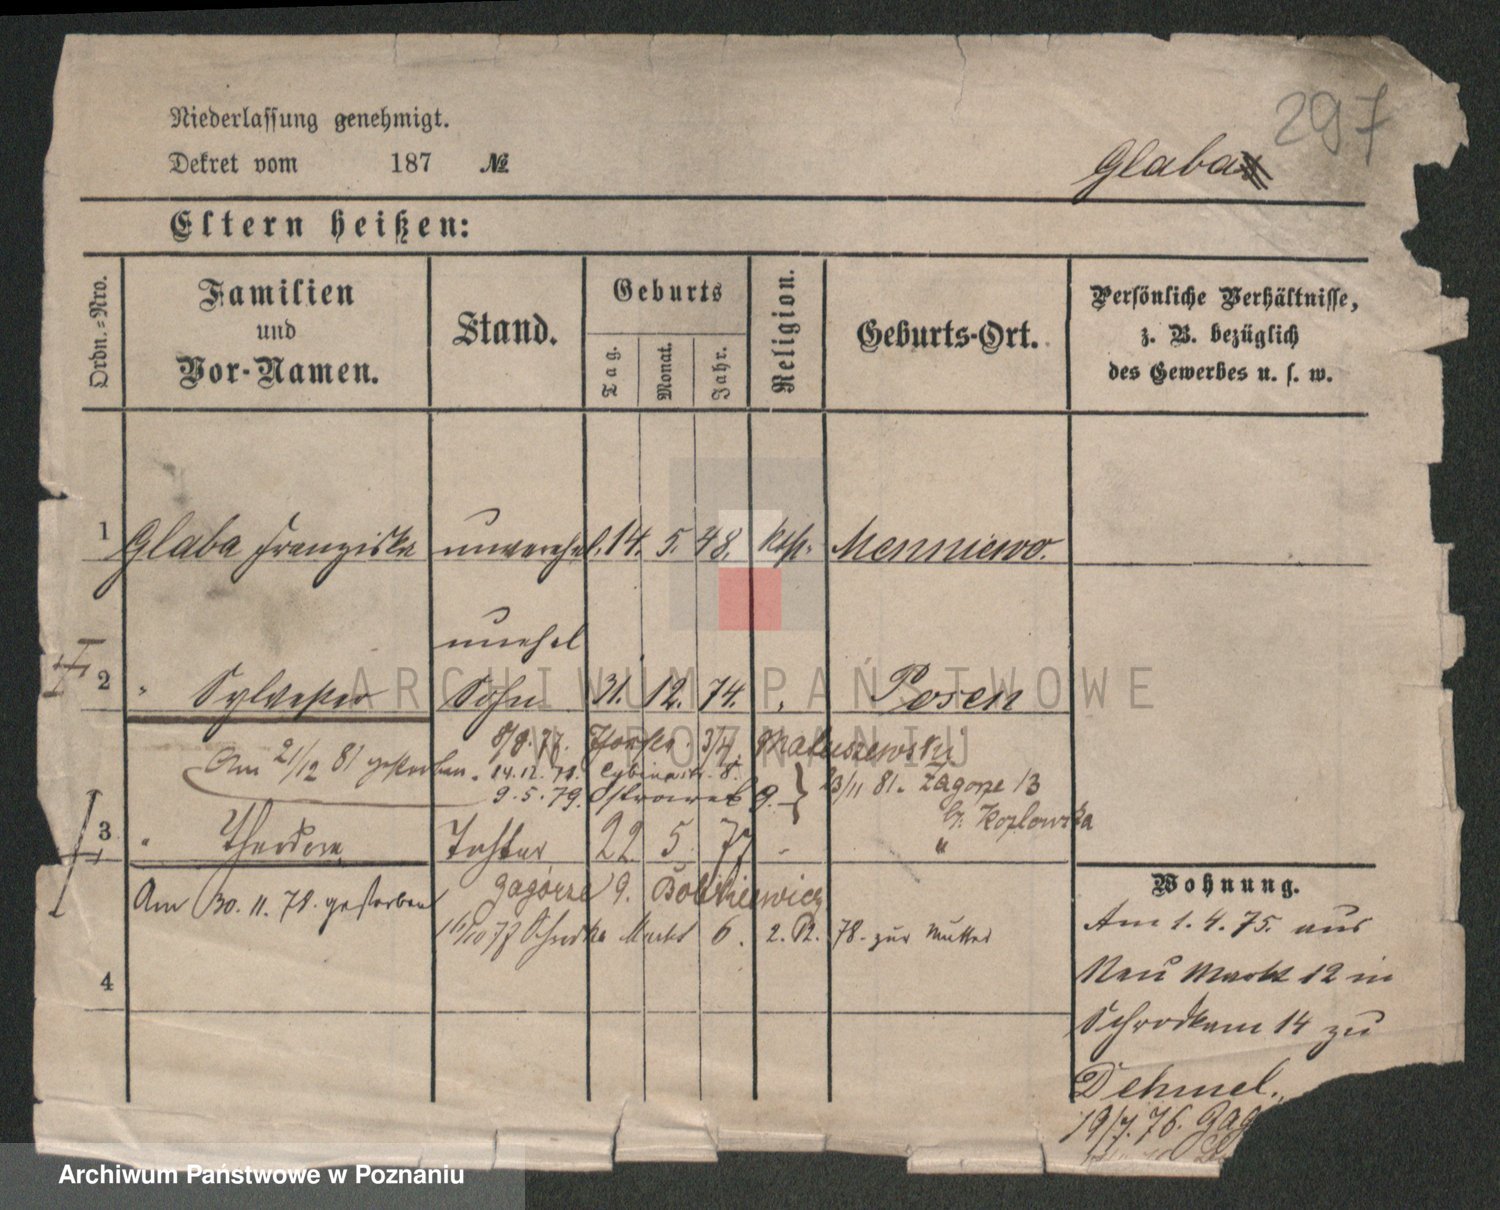 297
Niederlassung genehmigt.
Dekret vom 187 №
Glaba
Eltern heißen:
Ordn.=Nro.
Familien
und
Vor-Namen.
Stand.
Geburts
Tag.
Monat.
Jahr.
Religion.
Geburts-Ort.
Persönliche Verhältnisse,
z. B. bezüglich
des Gewerbes u. s. w.
1 Glaba Franziska unverehel. 14. 5. 48. kath. Menniewo.
unehel
2 " Sylvester Sohn 31. 12. 74. " Posen
Am 21/12 81 gestorben.
8/8. 77. 3/4. Matuszewski
14.12.78. Cybinastr. 8.
9.5.79. Ostrowek 9. } 23/11 81. Zagorze 13
b. Kozlowska
3 " Theodora Tochter 22 5 77 - "
Am 30. 11. 78. gestorben
Zagórze 9. Bolikiewicz
16/10 77 Schrodka Markt 6. 2. 12. 78. zur Mutter
4
Wohnung.
Am 1. 4. 75. aus
Neu Markt 12 in
Schrodkam 14 zu
Dehmel.
19/7. 76. Zag
ARCHIWUM PAŃSTWOWE
W POZNANIU
Archiwum Państwowe w Poznaniu